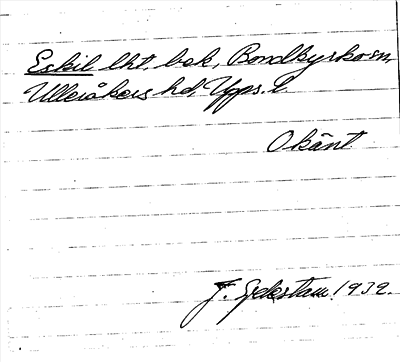 Eskil lht, bek, Bondkyrko sn,
Ulleråkers hd, Upps. l.
Okänt
J. Ejdestam 1932.